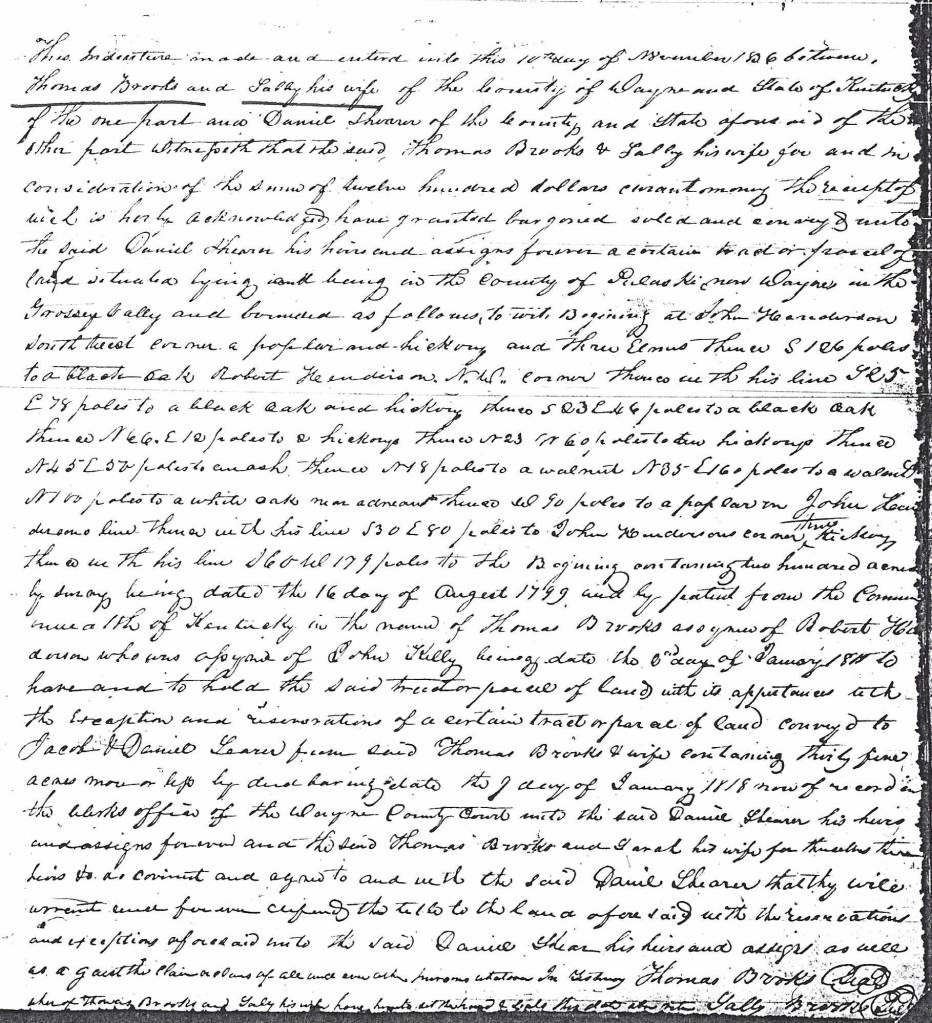 This Indenture made and enterd into this 10th day of November 1836 between
Thomas Brooks and Sally his wife of the County of Wayne and State of Kentucky
of the one part and Daniel Shearer of the County and State aforesaid of the
other part Witnesseth that the said Thomas Brooks & Sally his wife for and in
consideration of the sum of twelve hundred dollars curant money the recept of
wich is herby acknowledged have granted bargoned soled and convey'd unto
the said Daniel Shearer his heirs and assigns forever a certain tract or parcel of
land situated lying and being in the County of Pulaski now Wayne in the
Grossey Vally and bounded as follows, to wit Begining at John Henderson
South West corner a poplar and hickory and three Elms thence S 126 poles
to a black oak Robert Henderson N.W. corner thence with his line S 25
E 78 poles to a black oak and hickory thence S 23 E 46 poles to a black oak
thence N 66. E 12 poles to 2 hickorys thence N 23 W 60 poles to two hickorys thence
N 45 E 50 poles to an ash thence N 18 poles to a walnut N 35 E 160 poles to a walnut
N 100 poles to a white oak near a thence W 90 poles to a poplar in John Hen
dersons line thence with his line S 30 E 80 poles to John Hendersons corner three Hickory
thence with his line S 60 W 179 poles to the Begining containing two hundred acres
by survey being dated the 16 day of August 1799 and by patent from the Common
wealth of Kentucky in the name of Thomas Brooks assynee of Robert Hen
derson who was assynee of John Kelly being date the day of January to
have and to hold the said tract or parcel of land with its appurtances with
the Exception and reservations of a certain tract or parcel of land convey'd to
Jacob & Daniel Shearer from said Thomas Brooks & wife containing thirty five
acres more or less by deed having date the 7 day of January 1818 now of record in
the Clerks office of the Wayne County Court unto the said Daniel Shearer his heirs
and assigns forever and the said Thomas Brooks and Sarah his wife for themselves their
heirs & as covinant and agree to and with the said Daniel Shearer that thy will
warrent and forever defend the title to the land afore said with the reservations
and exceptions aforesaid unto the said Daniel Shear his heirs and assigns as well
as against the claim or clams of all and every other persons whatsoever In Testimony Thomas Brooks Seal
of Thomas Brooks and Sally his wife have set their hands & seals this date Sally Brooks Seal